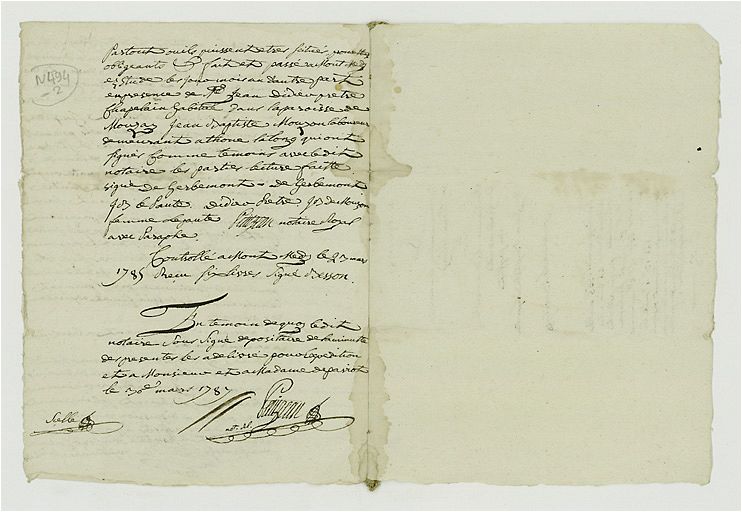 N494
-2
Partout ou ils puissent etres situés, pour
obligeants fait et passé a Mont Medy
es Etude les jour mois an d'autre part
en presence de Jean Didier pretre
Chapelain habitué dans la paroisse de
Mouzay Jean Baptiste Mouzon laboureur
demeurant a thone la long qui ont
signés comme temoins avec le dit
notaire les parties lecture faitte
signé de Gerbemont = de Gerbemont
Didier Pretre Mouzon
femme notaire Royal
avec Paraphe
Controllé a Mont Medy le 27 mars
1785 Recu six Livres Signé
En temoin de quoy le dit
notaire sous signé depositaire de la minutte
des presentes les a delivré pour Expedition
et a Monsieur et a Madame
le mars 1787
Scellé
not. R.